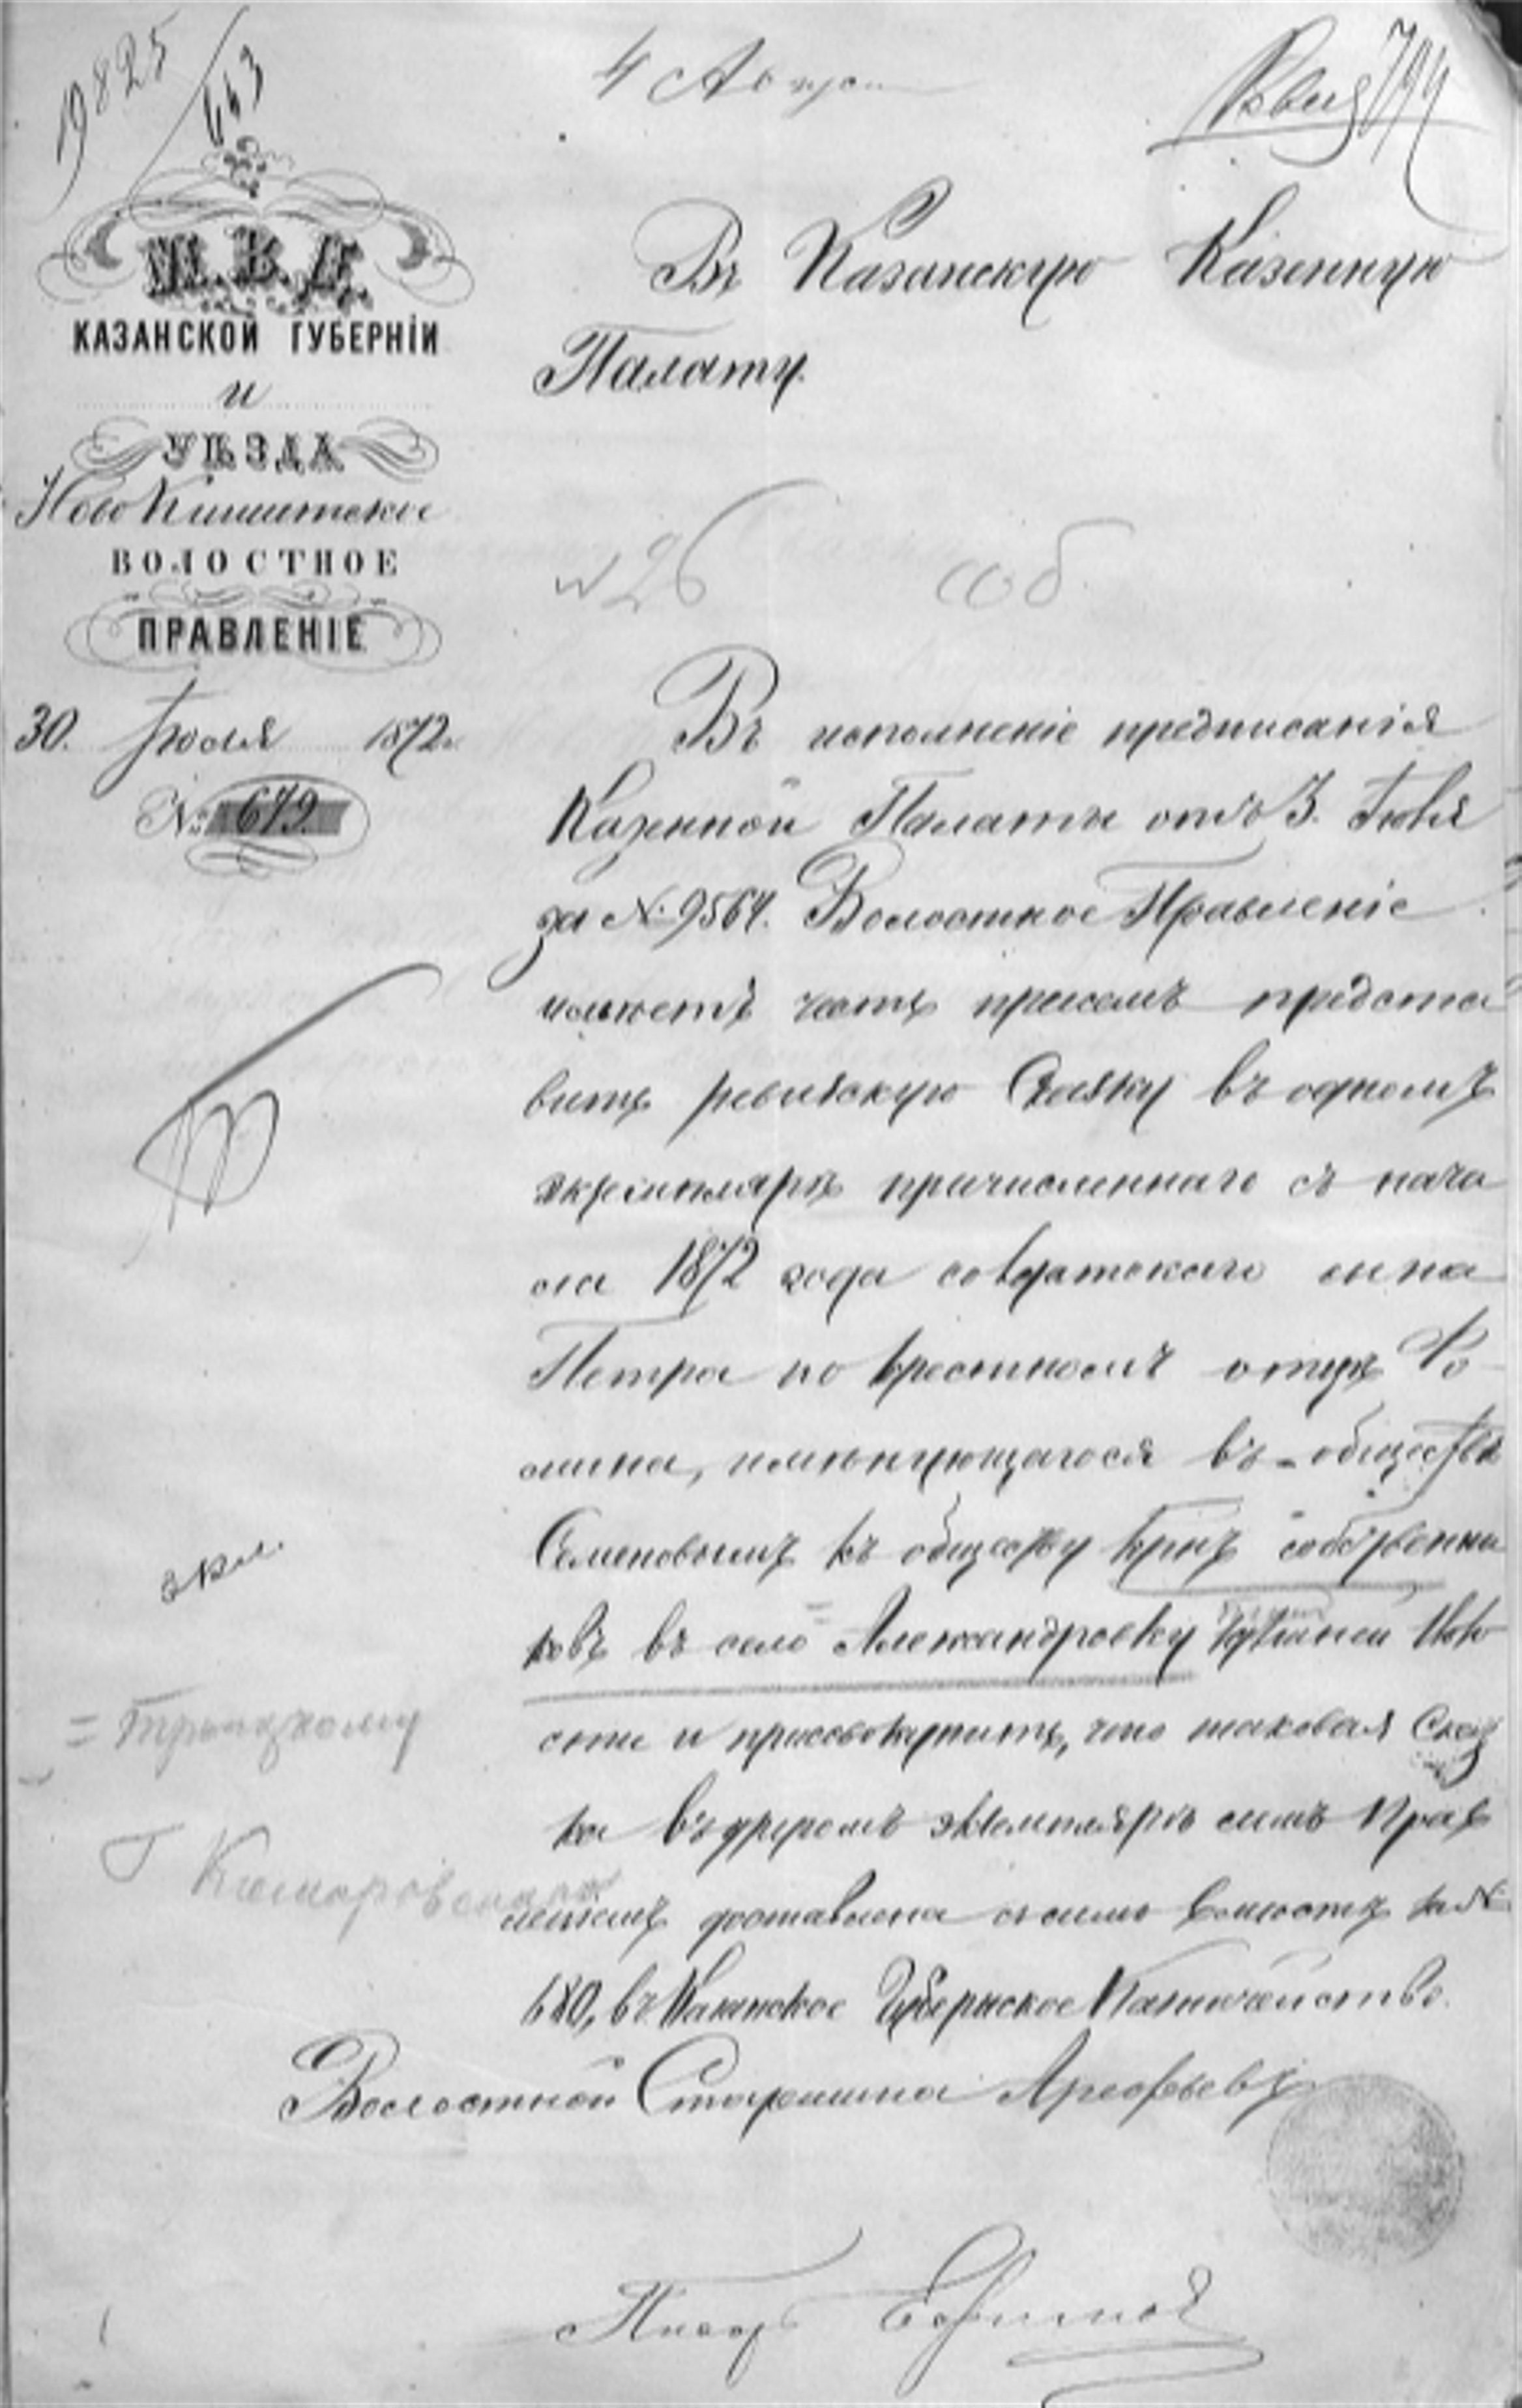 19825
643
4 Август
Ревиз 794
М.В.Д.
КАЗАНСКОЙ ГУБЕРНІИ
и
УѢЗДА
Ново Кишитское
ВОЛОСТНОЕ
ПРАВЛЕНІЕ
30. Іюля 1872 г.
№ 679.
Въ Казанскую Казенную
Палату.
№ 26
Въ исполненіе предписанія
Казенной Палаты отъ 3. Іюня
за № 9564. Волостное Правленіе
имѣетъ честь присемъ предста
вить ревизскую Сказку въ одномъ
экземплярѣ причисленнаго съ нача
ла 1872 года солдатскаго сына
Петра по крестномъ отцѣ Фо
мина, именующагося въ обществѣ
Семеновымъ къ обществу крест. собственни
ковъ въ село = Александровку
сти и присовокупить, что таковая Сказ
ка въ другомъ экземплярѣ симъ Прав
леніемъ доставлена съ симъ вместѣ за №
680, въ Казанское Губернское Казначейство.
Волостной Старшина Арефьевъ
Писарь Ефимов
экз.
= Троицкому
Г Комаровскаго